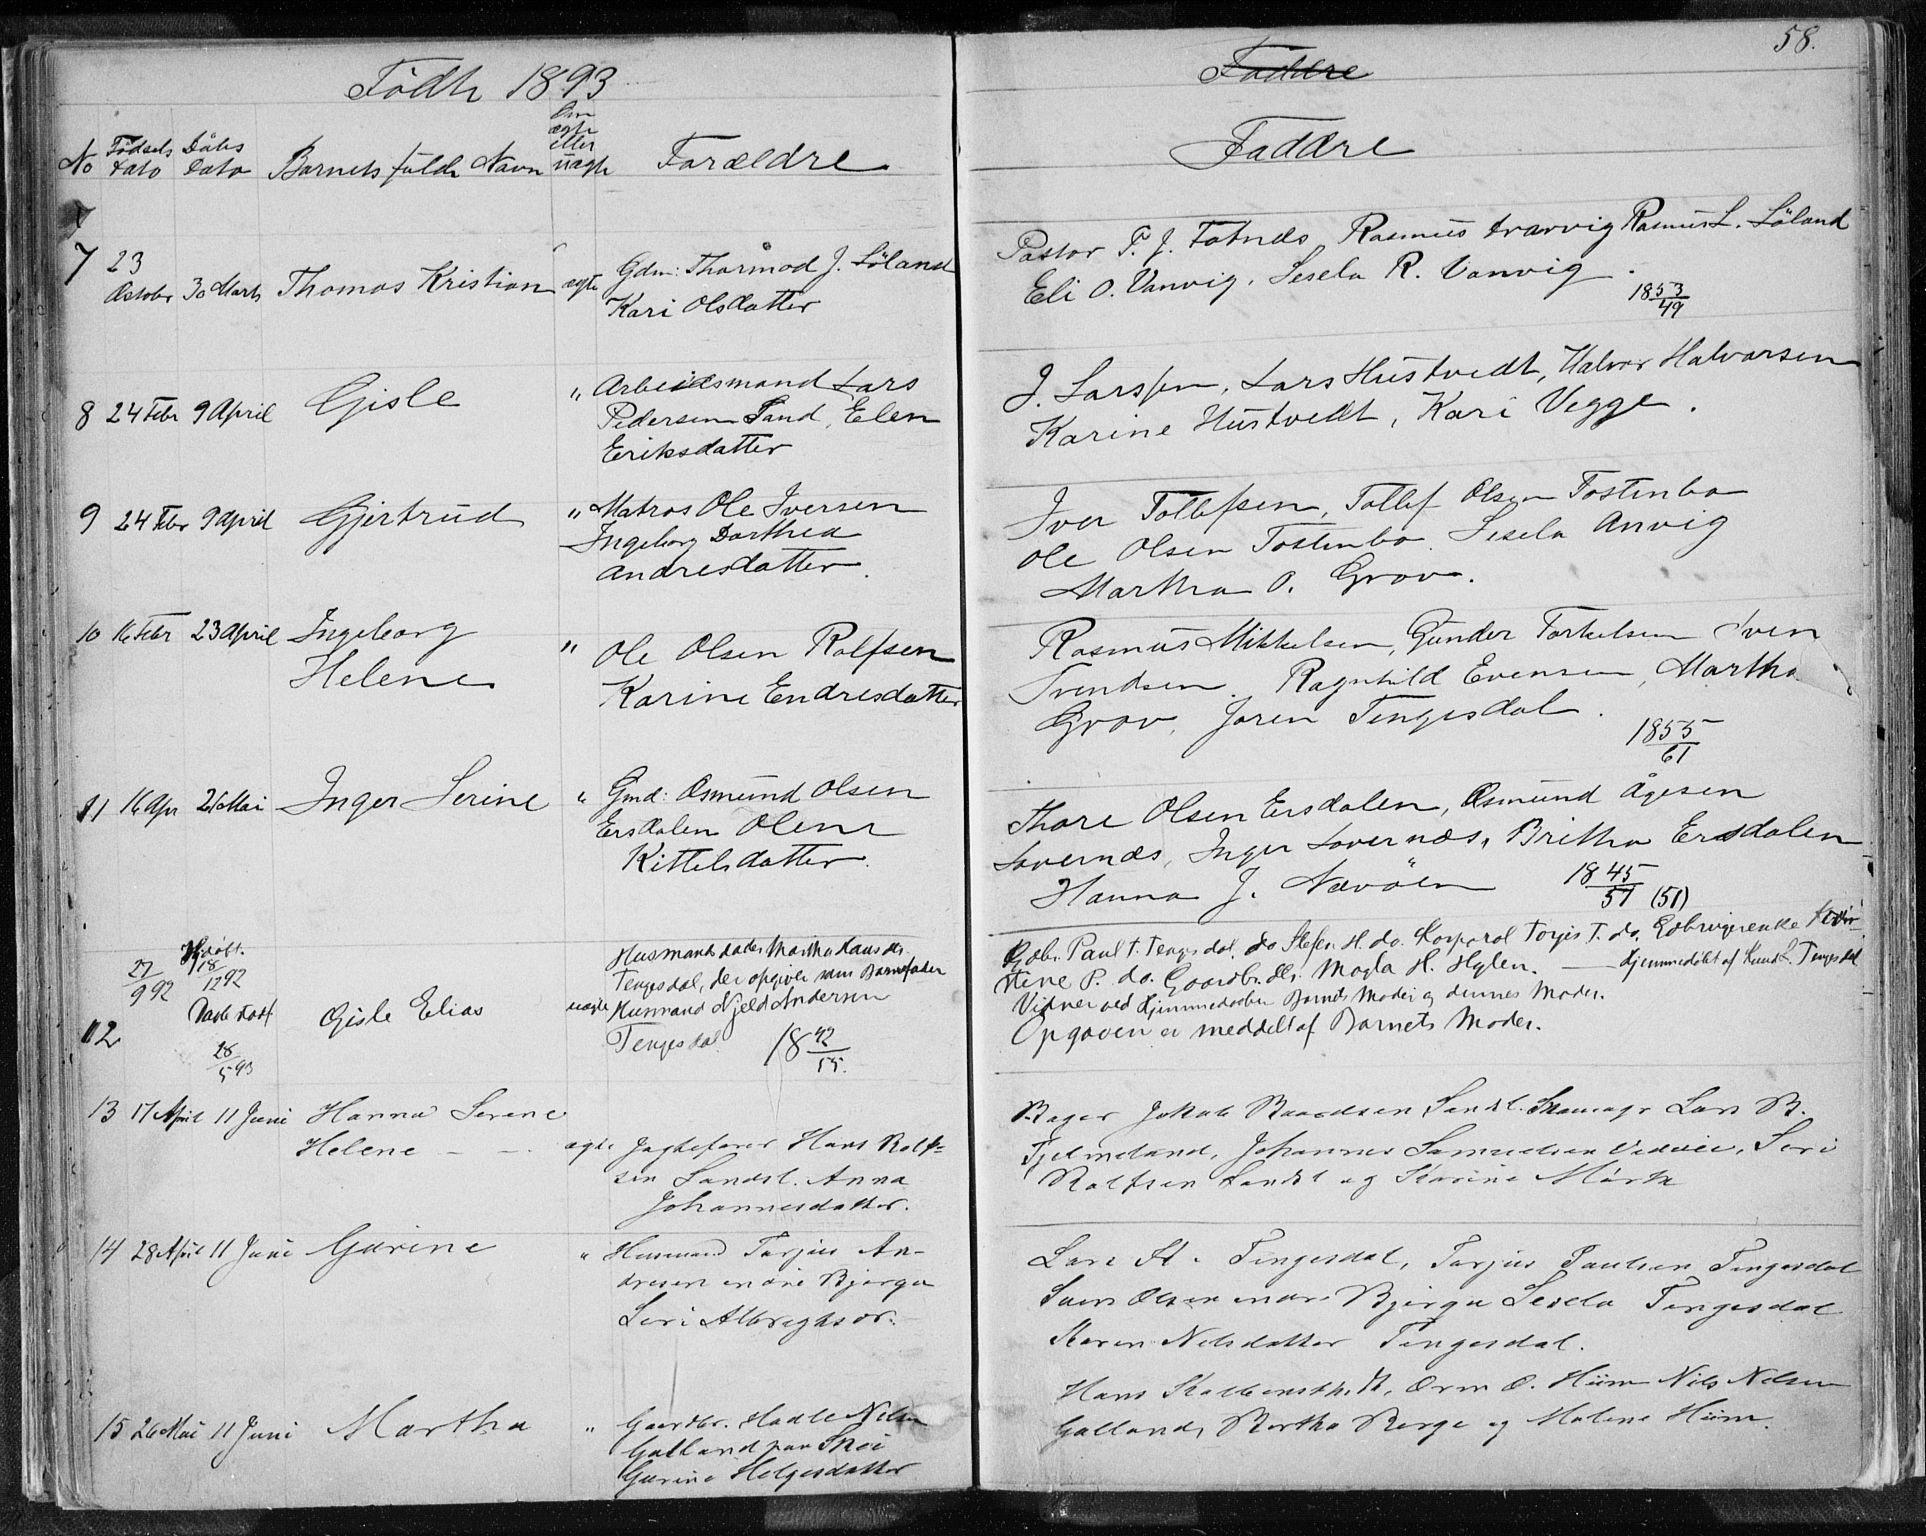 Födte 1893
No Födsels Dato Dåbs Dato Barnets fulde Navn Om ægte eller uægte Forældre
7 23 October 30 Marts Thomas Kristian ægte Gdm: Thormod J. Löland
Kari Olsdatter
8 24 Febr 9 April Gisle " Arbeidsmand Lars
Pedersen Sand, Elen
Eriksdatter
9 24 Febr 9 April Gjertrud " Matros Ole Iversen
Ingeborg Dorthea
Andresdatter.
10 16 Febr 23 April Ingeborg
Helene " Ole Olsen Rolfsen
Karine Endresdatter
11 16 Apr 21 Mai Inger Serine " Gmd: Osmund Olsen
Ersdalen Olene
Kittelsdatter.
12 27/9 92 Hjdöbt. 18/12 92 Gisle Elias uægte Husmands dater Martha Hansdtr.
Tengesdal, der opgiver som Barnefader
Husmand Njeld Andersen
Tengesdal 18 42/55.
28/5 93
13 17 April 11 Juni Hanna Serene
Helene — — ægte Jagtefører Hans Rolf-
sen Sandsl. Anna
Johannesdatter.
14 28 April 11 Juni Gurine " Husmand Torjus An-
dresen Bjerga
Seri Albregtsdr.
15 26 Mai 11 Juni Martha " Gaardbr. Nilsen
Galland paa
Gurine Helgesdatter
58.
Faddre
Faddre
Pastor F. J. Rasmus Rasmus L. Löland
Eli O. Vanvig, Sesela R. Vanvig.
1853/49
J. Larssen, Lars Hustvedt, Halvor Halvorsen
Karine Hustvedt, Kari Vegge.
Iver Tollefsen, Tollef Olsen Tostenbo
Ole Olsen Tostenbo. Sesela Anvig
Martha O. Grov.
Rasmus Mikkelsen, Gunder Torkelsen Sven
Svendsen. Ragnhild Evensen, Martha
Grov, Joren Tengesdal.
1855/61
Thore Olsen Ersdalen, Osmund Ågesen
Lovernæs, Inger Lovernæs, Britha Ersdalen
Hanna J. Nævöen 18 45/57 (51)
Gbr. Paul T. Tengesdal, do Stefen H. do. Korporal Torjes T. do. Gbrugerenke
tine P. do. Gaardbr. dtr. Magla H. Hylen. — Hjemmedøbt af Knud L. Tengesdal
Vidner ved Hjemmedaaben Barnets Moder og dennes Moder.
Opgaven er meddelt af Barnets Moder.
Bager Jakob Baardsen Sandsl. Skomagr Lars B.
Fjelmeland, Johannes Samuelsen Vedvii, Seri
Rolfsen Sandsl og Karine Mørk
Lars St. Tengesdal, Torjus Paulsen Tengesdal
Svern Olsen Bjerga Sesela Tengesdal
Karen Nilsdatter Tengesdal.
Hans Orm O. Hiim Nils Nilsen
Galland, Bertha Berge og Malene Hiim.